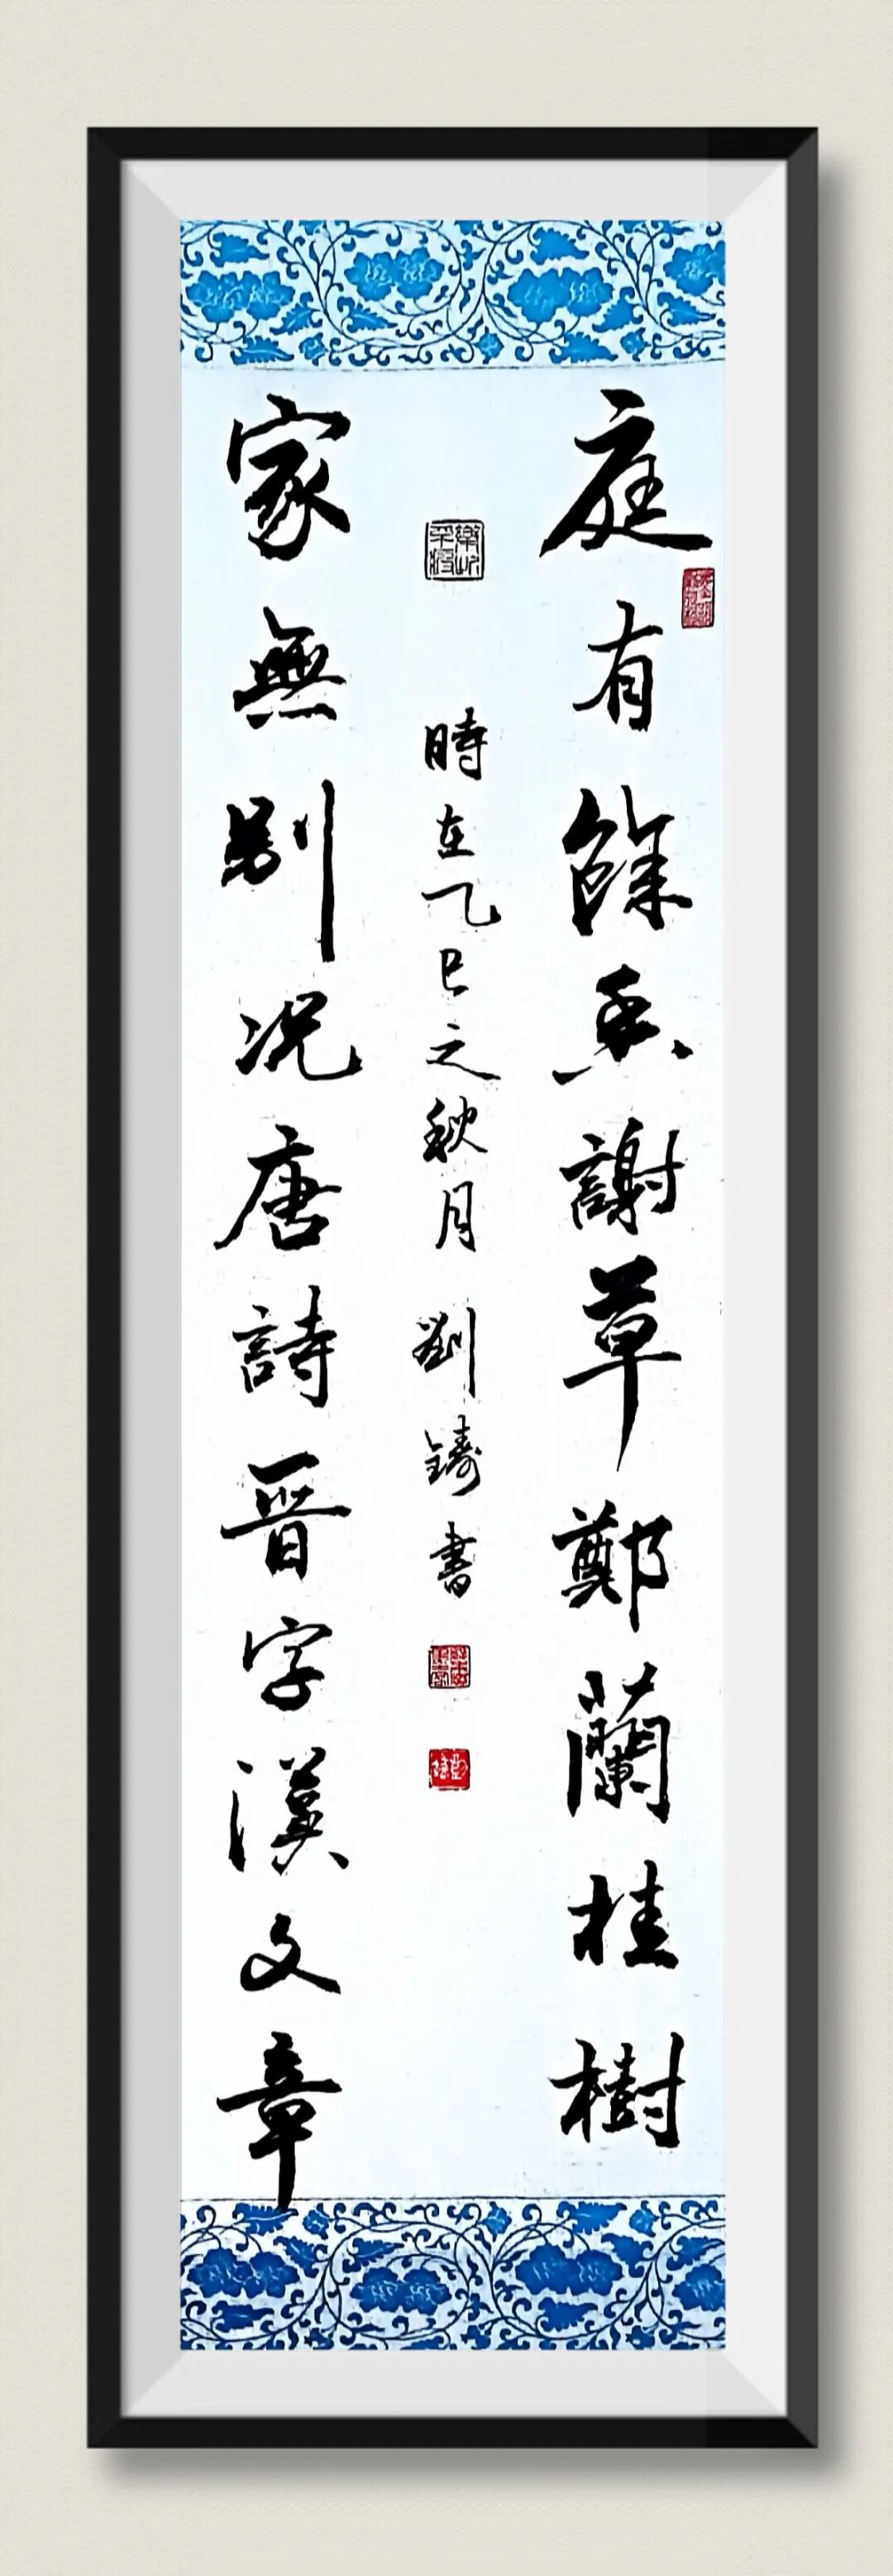 庭有餘香謝草鄭蘭桂樹
家無別況唐詩晉字漢文章
時在乙巳之秋月 劉鑄書